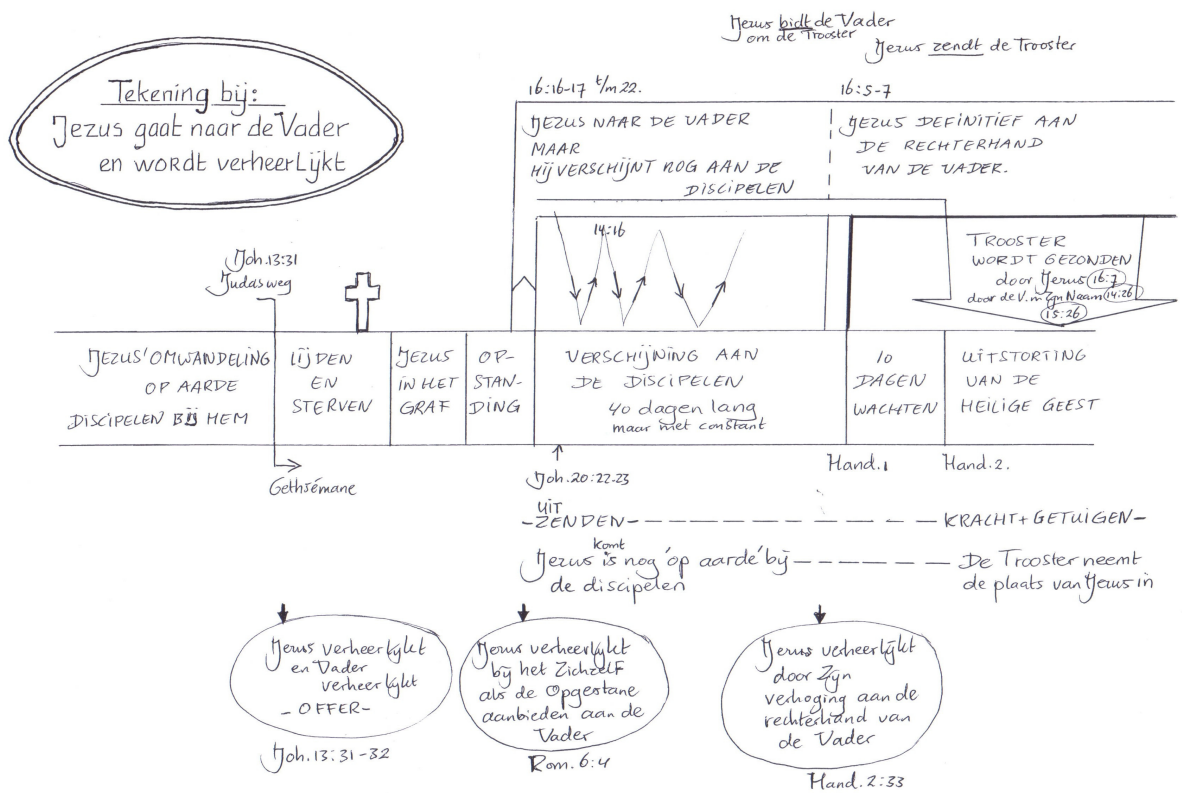 Tekening bij:
Jezus gaat naar de Vader
en wordt verheerlijkt
Jezus bidt de Vader
om de Trooster
Jezus zendt de Trooster
16:16-17 t/m 22.
16:5-7
JEZUS NAAR DE VADER
MAAR
HIJ VERSCHIJNT NOG AAN DE
DISCIPELEN
JEZUS DEFINITIEF AAN
DE RECHTERHAND
VAN DE VADER.
14:16
TROOSTER
WORDT GEZONDEN
door Jezus 16:7
door de V. in Zijn Naam 14:26
15:26
Joh. 13:31
Judas weg
JEZUS' OMWANDELING
OP AARDE
DISCIPELEN BIJ HEM
LIJDEN
EN
STERVEN
JEZUS
IN HET
GRAF
OP-
STAN-
DING
VERSCHIJNING AAN
DE DISCIPELEN
40 dagen lang
maar niet constant
10
DAGEN
WACHTEN
UITSTORTING
VAN DE
HEILIGE GEEST
Gethsémane
Joh. 20:22-23
Hand. 1
Hand. 2.
UIT
-ZENDEN- — — — — — — — — KRACHT + GETUIGEN-
komt
Jezus is nog 'op aarde' bij — — — — — — De Trooster neemt
de discipelen
de plaats van Jezus in
Jezus verheerlijkt
en Vader
verheerlijkt
- OFFER -
Joh. 13:31-32
Jezus verheerlijkt
bij het Zichzelf
als de Opgestane
aanbieden aan de
Vader
Rom. 6:4
Jezus verheerlijkt
door Zijn
verhoging aan de
rechterhand van
de Vader
Hand. 2:33